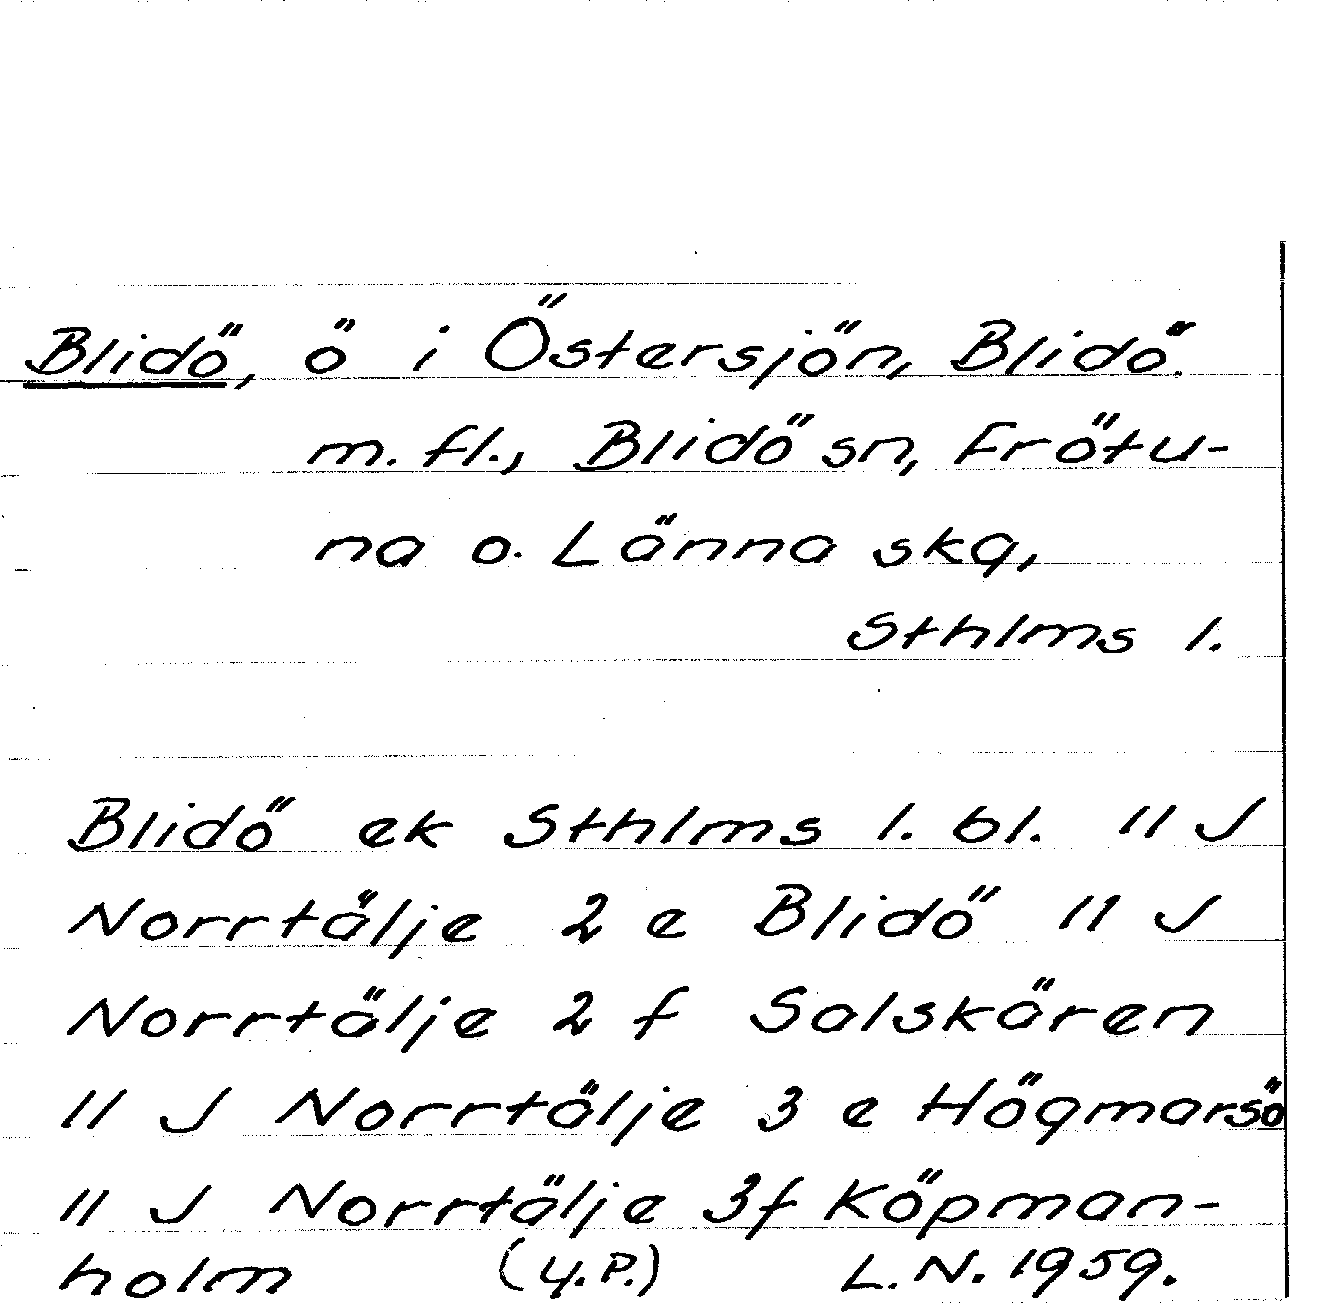 Blidö, ö i Östersjön, Blidö
m. fl., Blidö sn, Frötu-
na o. Länna skg,
Sthlms l.
Blidö ek Sthlms l. bl. 11 J
Norrtälje 2 e Blidö 11 J
Norrtälje 2 f Salskären
11 J Norrtälje 3 e Högmarsö
11 J Norrtälje 3f Köpman-
holm (4.P.) L.N. 1959.